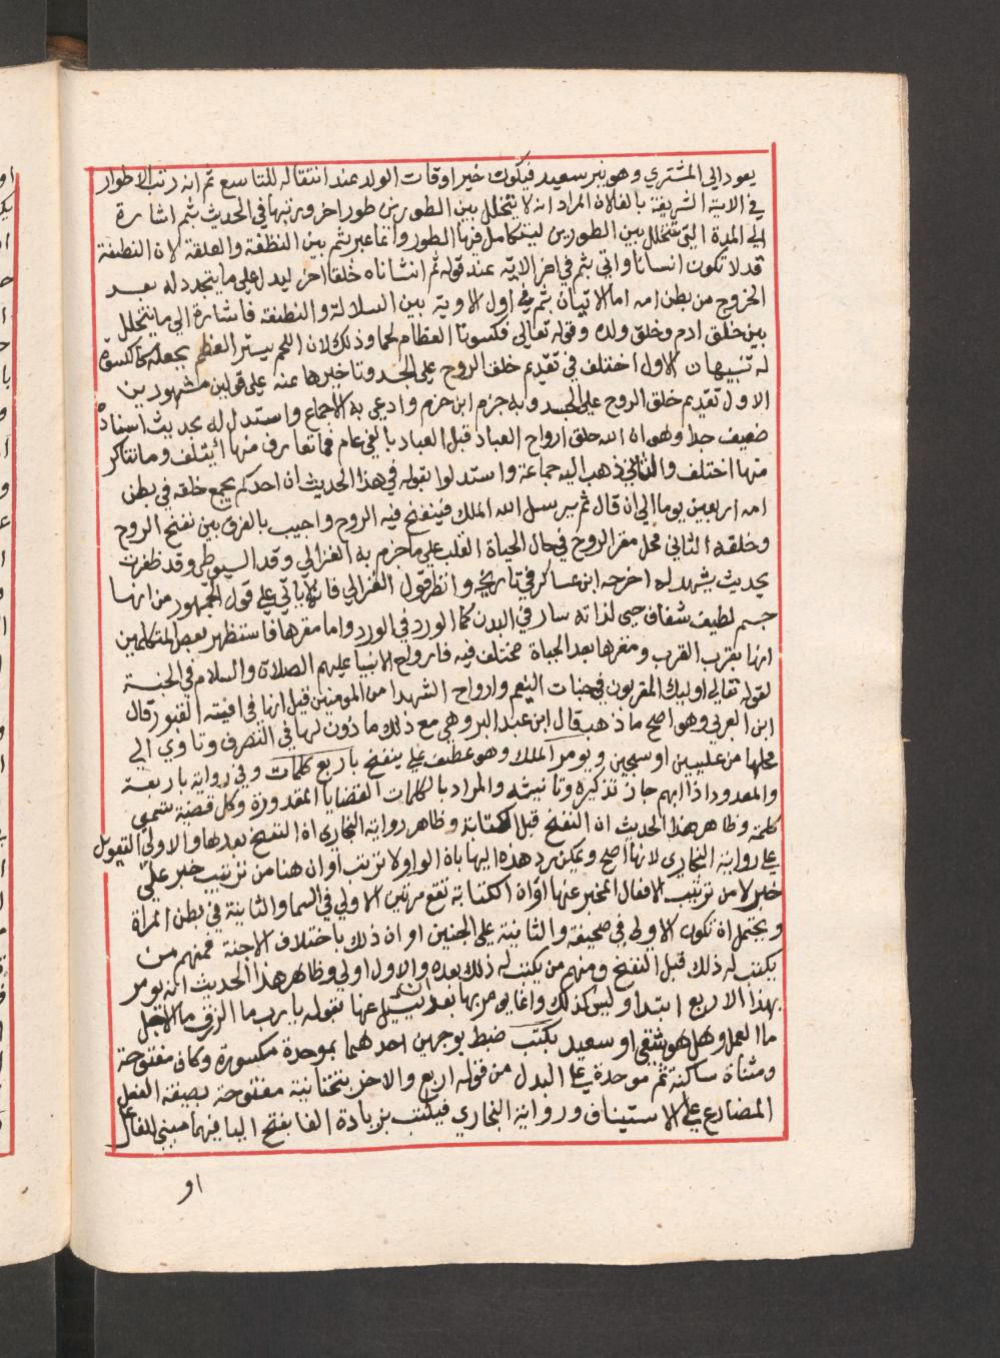 يعود الي المشتري وهو نير سعيد فيكون خير اوقات الولد عند انتقاله للتاسع ثم انه رتب الاطوار
في الاية الشريفة بالفا لان المراد انه لا يتخلل بين الطورين طور اخر ورتبها في الحديث بثم اشارة
الي المدة التي تتخلل بين الطورين ليتكامل فيها الطور وانما عبر بثم بين النطفة والعلقة لان النطفة
قد لا تكون انسانا واتي بثم في اخر الاية عند قوله ثم انشاناه خلقا اخر ليدل علي ما يتجدد له بعد
الخروج من بطن امه اما الاتيان بثم في اول الاوية بين السلالة والنطفة فاشارة الي ما يتخلل
بين خلق ادم وخلق ولده وقوله تعالي فكسونا العظام لحما وذلك لان اللحم يستر العظم بجعله كالكسوة
له تنبيهان الاول اختلف في تقديم خلق الروح علي الجسد وتاخيرها عنه علي قولين مشهورين
الاول تقديم خلق الروح علي الجسد وبه جزم ابن حزم وادعي به الاجماع واستدل له بحديث اسناده
ضعيف جدا وهو ان الله خلق ارواح العباد قبل العباد بالفي عام فما تعارف منها ائتلف وما تناكر
منها اختلف والثاني ذهب اليه جماعة واستدلوا بقوله في هذا الحديث ان احدكم يجمع خلقه في بطن
امه اربعين يوما الي ان قال ثم يرسل الله الملك فينفخ فيه الروح واجيب بالفرق بين نفخ الروح
وخلقه الثاني محل مقر الروح في حال الحياة القلب علي ما جزم به الغزالي وقد السيوطي وقد ظفرت
بحديث يشهد له اخرجه ابن عساكر في تاريخه وانظر قول الغزالي فانه لا ياتي علي قول الجمهور من انها
جسم لطيف شفاف حي لذاته سار في البدن كماء الورد في الورد واما مقرها فاستظهر بعض المتكلمين
انها بقرب القرب ومقرها بعد الحياة مختلف فيه فارواح الانبيا عليهم الصلاة والسلام في الجنة
لقوله تعالي اوليك المقربون في جنات النعيم وارواح الشهدا من المومنين قيل انها في افنية القبور قال
ابن العربي وهو اصح ما ذهب قال ابن عبد البر وهي مع ذلك ماذون لها في التصرف وتاوي الي
محلها من عليين او سجين ويومر الملك وهو عطف علي ينفخ باربع كلمات وفي رواية باربعة
والمعدود اذا ابهم جاز تذكيره وتانيثه والمراد بالكلمات القضايا المقدورة وكل قضية تسمي
كلمة وظاهر هذا الحديث ان النفخ قبل الكتابة وظاهر رواية البخاري ان النفخ بعدها والاولي التعويل
علي رواية البخاري لانها اصح ويمكن برد هذه اليها بان الواو لا ترتب او ان هنا من ترتيب خبر علي
خبر لا من ترتيب الافعال المخبر عنها او ان الكتابة تقع مرتين الاولي في السما والثانية في بطن المراة
ويحتمل ان تكون الاولي في صحيفة والثانية علي الجنين او ان ذلك باختلاف الاجنة فمنهم من
يكتب له ذلك قبل النفخ ومنهم من يكتب له ذلك بعده والاول اولي وظاهر هذا الحديث انه يومر
بهذا الاربع ابتدا وليس كذلك وانما يومر بها بعد ان يسيل عنها بقوله يا رب ما الرزق ما الاجل
ما العمل وهل هو شقي او سعيد بكتب ضبط بوجهين احدهما بموحدة مكسورة وكاف مفتوحة
ومثناة ساكنة ثم موحدة علي البدل من قوله اربع والاخر بتحتانية مفتوحة بصيغة الفعل
المضارع علي الاستيناف ورواية البخاري فيكتب بزيادة الفا بفتح اليا فيهما مبني للفاعل
او